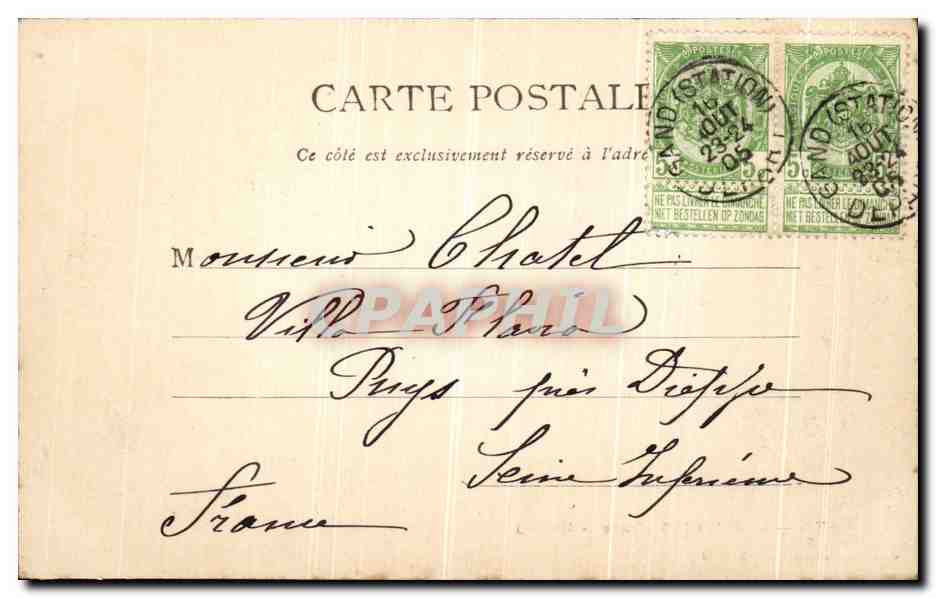 CARTE POSTALE
Ce côté est exclusivement réservé à l'adre
POSTES
POSTES
5
5
5
NE PAS LIVRER LE DIMANCHE
NIET BESTELLEN OP ZONDAG
NE PAS LIVRER LE DIMANCHE
NIET BESTELLEN OP ZONDAG
GAND (STATION)
16
AOUT
23-24
05
DEPART
GAND (STATION
16
AOUT
23-24
05
DEPA
Monsieur Chatel
Villa Flavio
Puys près Dieppe
Seine Inférieure
France
CPAPHIL